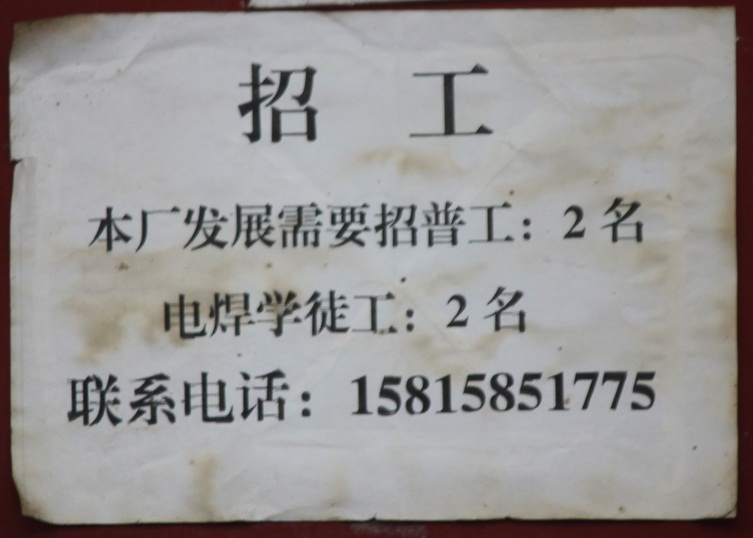 招 工
本厂发展需要招普工：2 名
电焊学徒工：2 名
联系电话：15815851775